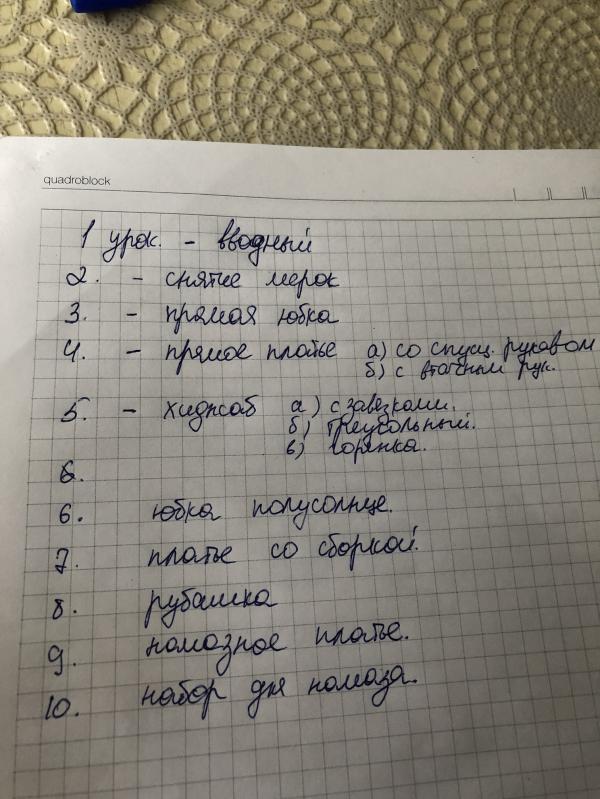 quadroblock
1 урок. - вводный
2. - снятие мерок
3. - прямая юбка
4. - прямое платье а) со спущ. рукавом
б) с втачным рук.
5. - хиджаб а) с завезками.
б) треугольный.
в) горянка.
6.
6. юбка полусолнце.
7. платье со сборкой.
8. рубашка
9. намазное платье.
10. набор для намаза.